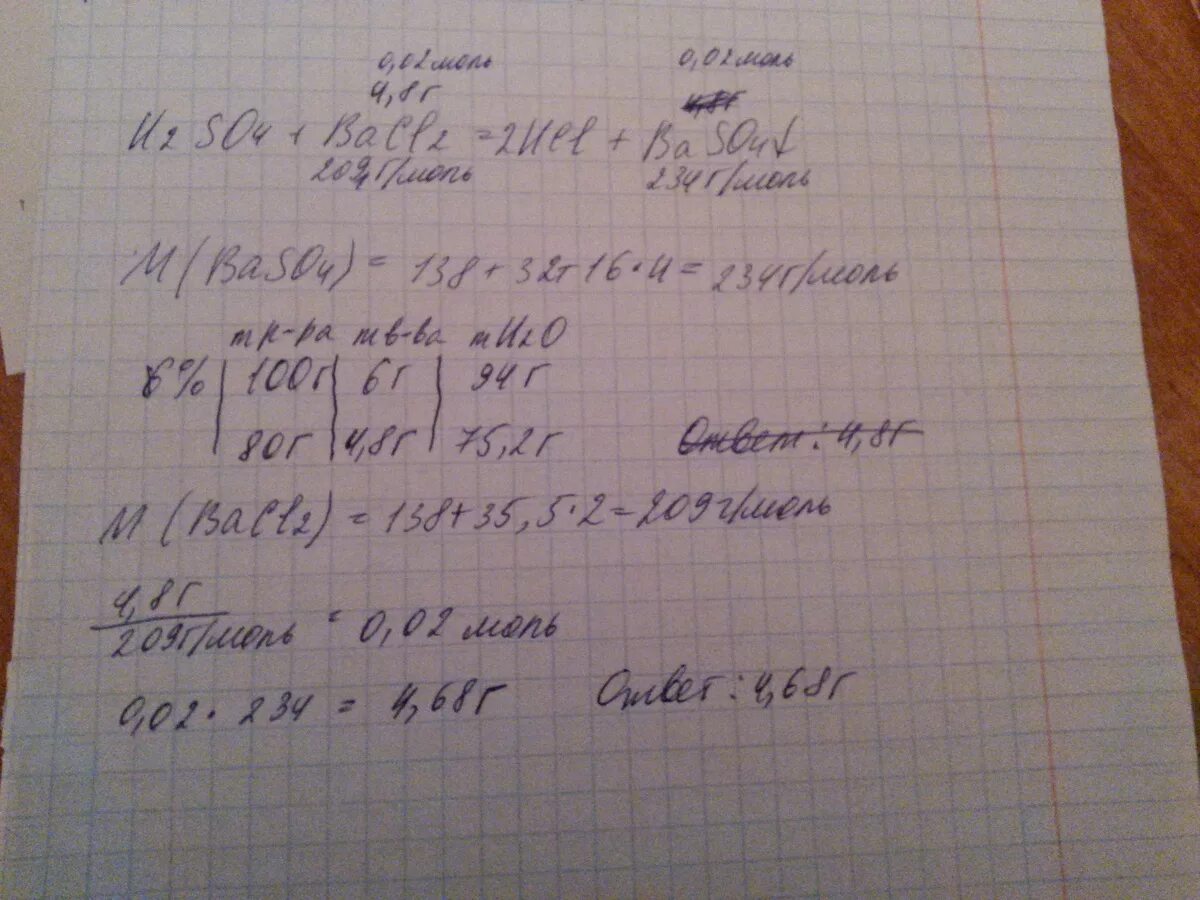 0,02 моль 0,02 моль
4,8г 4,8г
H2SO4 + BaCl2 = 2HCl + BaSO4↓
209г/моль 234г/моль
M(BaSO4) = 138+32+16·4 = 234г/моль
m р-ра m в-ва mH2O
6% 100г 6г 94г
80г 4,8г 75,2г Ответ: 4,8г
M(BaCl2) = 138+35,5·2=209г/моль
4,8г
209г/моль = 0,02 моль
0,02·234 = 4,68г Ответ: 4,68г